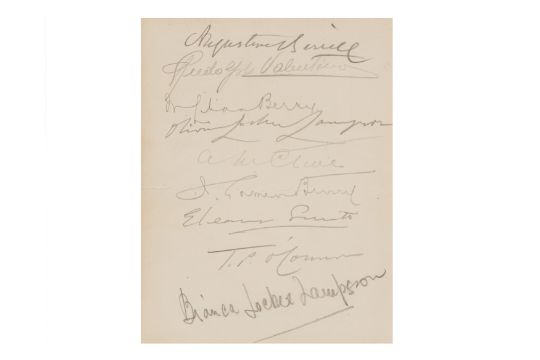 Augustine Birrell
Rudolph Valentino
Berry
Oliver Locker Lampson
A McClure
Berry
Eleanor Smith
T. P. O'Connor
Bianca Locker Lampson